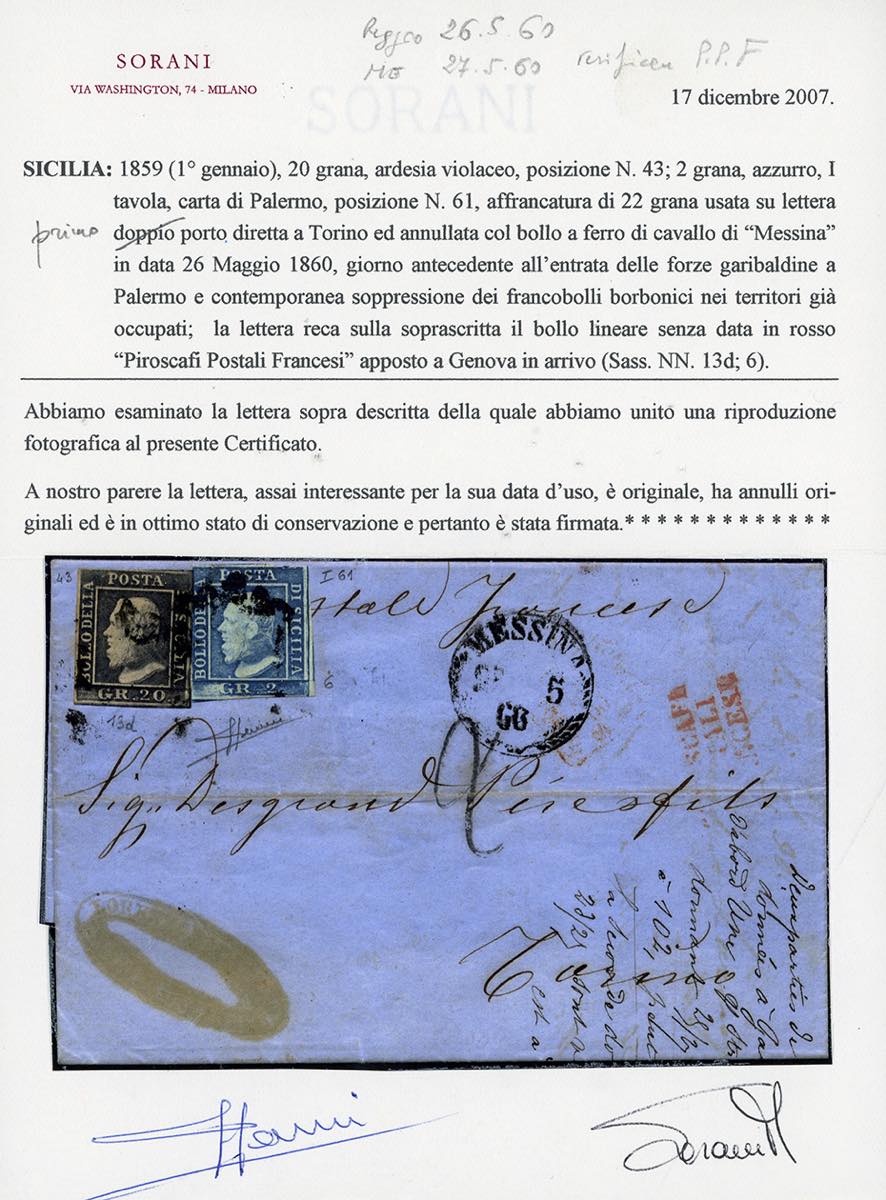 Reggio 26.5.60
ME 27.5.60 verificare P.P.F
SORANI
VIA WASHINGTON, 74 - MILANO
SORANI
17 dicembre 2007.
SICILIA: 1859 (1° gennaio), 20 grana, ardesia violaceo, posizione N. 43; 2 grana, azzurro, I
tavola, carta di Palermo, posizione N. 61, affrancatura di 22 grana usata su lettera
primo doppio porto diretta a Torino ed annullata col bollo a ferro di cavallo di “Messina”
in data 26 Maggio 1860, giorno antecedente all’entrata delle forze garibaldine a
Palermo e contemporanea soppressione dei francobolli borbonici nei territori già
occupati; la lettera reca sulla soprascritta il bollo lineare senza data in rosso
“Piroscafi Postali Francesi” apposto a Genova in arrivo (Sass. NN. 13d; 6).
Abbiamo esaminato la lettera sopra descritta della quale abbiamo unito una riproduzione
fotografica al presente Certificato.
A nostro parere la lettera, assai interessante per la sua data d’uso, è originale, ha annulli ori-
ginali ed è in ottimo stato di conservazione e pertanto è stata firmata.* * * * * * * * * * * * *
43
POSTA
BOLLO DELLA
SICILIA
GR. 20
13d
POSTA
BOLLO DELLA
DI SICILIA
GR. 2
I 61
6
stale Francese
MESSINA
5
60
SCAFI
ALI
NCESI
2
Sig. Desgrand Père et fils
Torino
Deux parties de
données à Ga
d'abord Une
à 102,
23/21
est à
Sorani